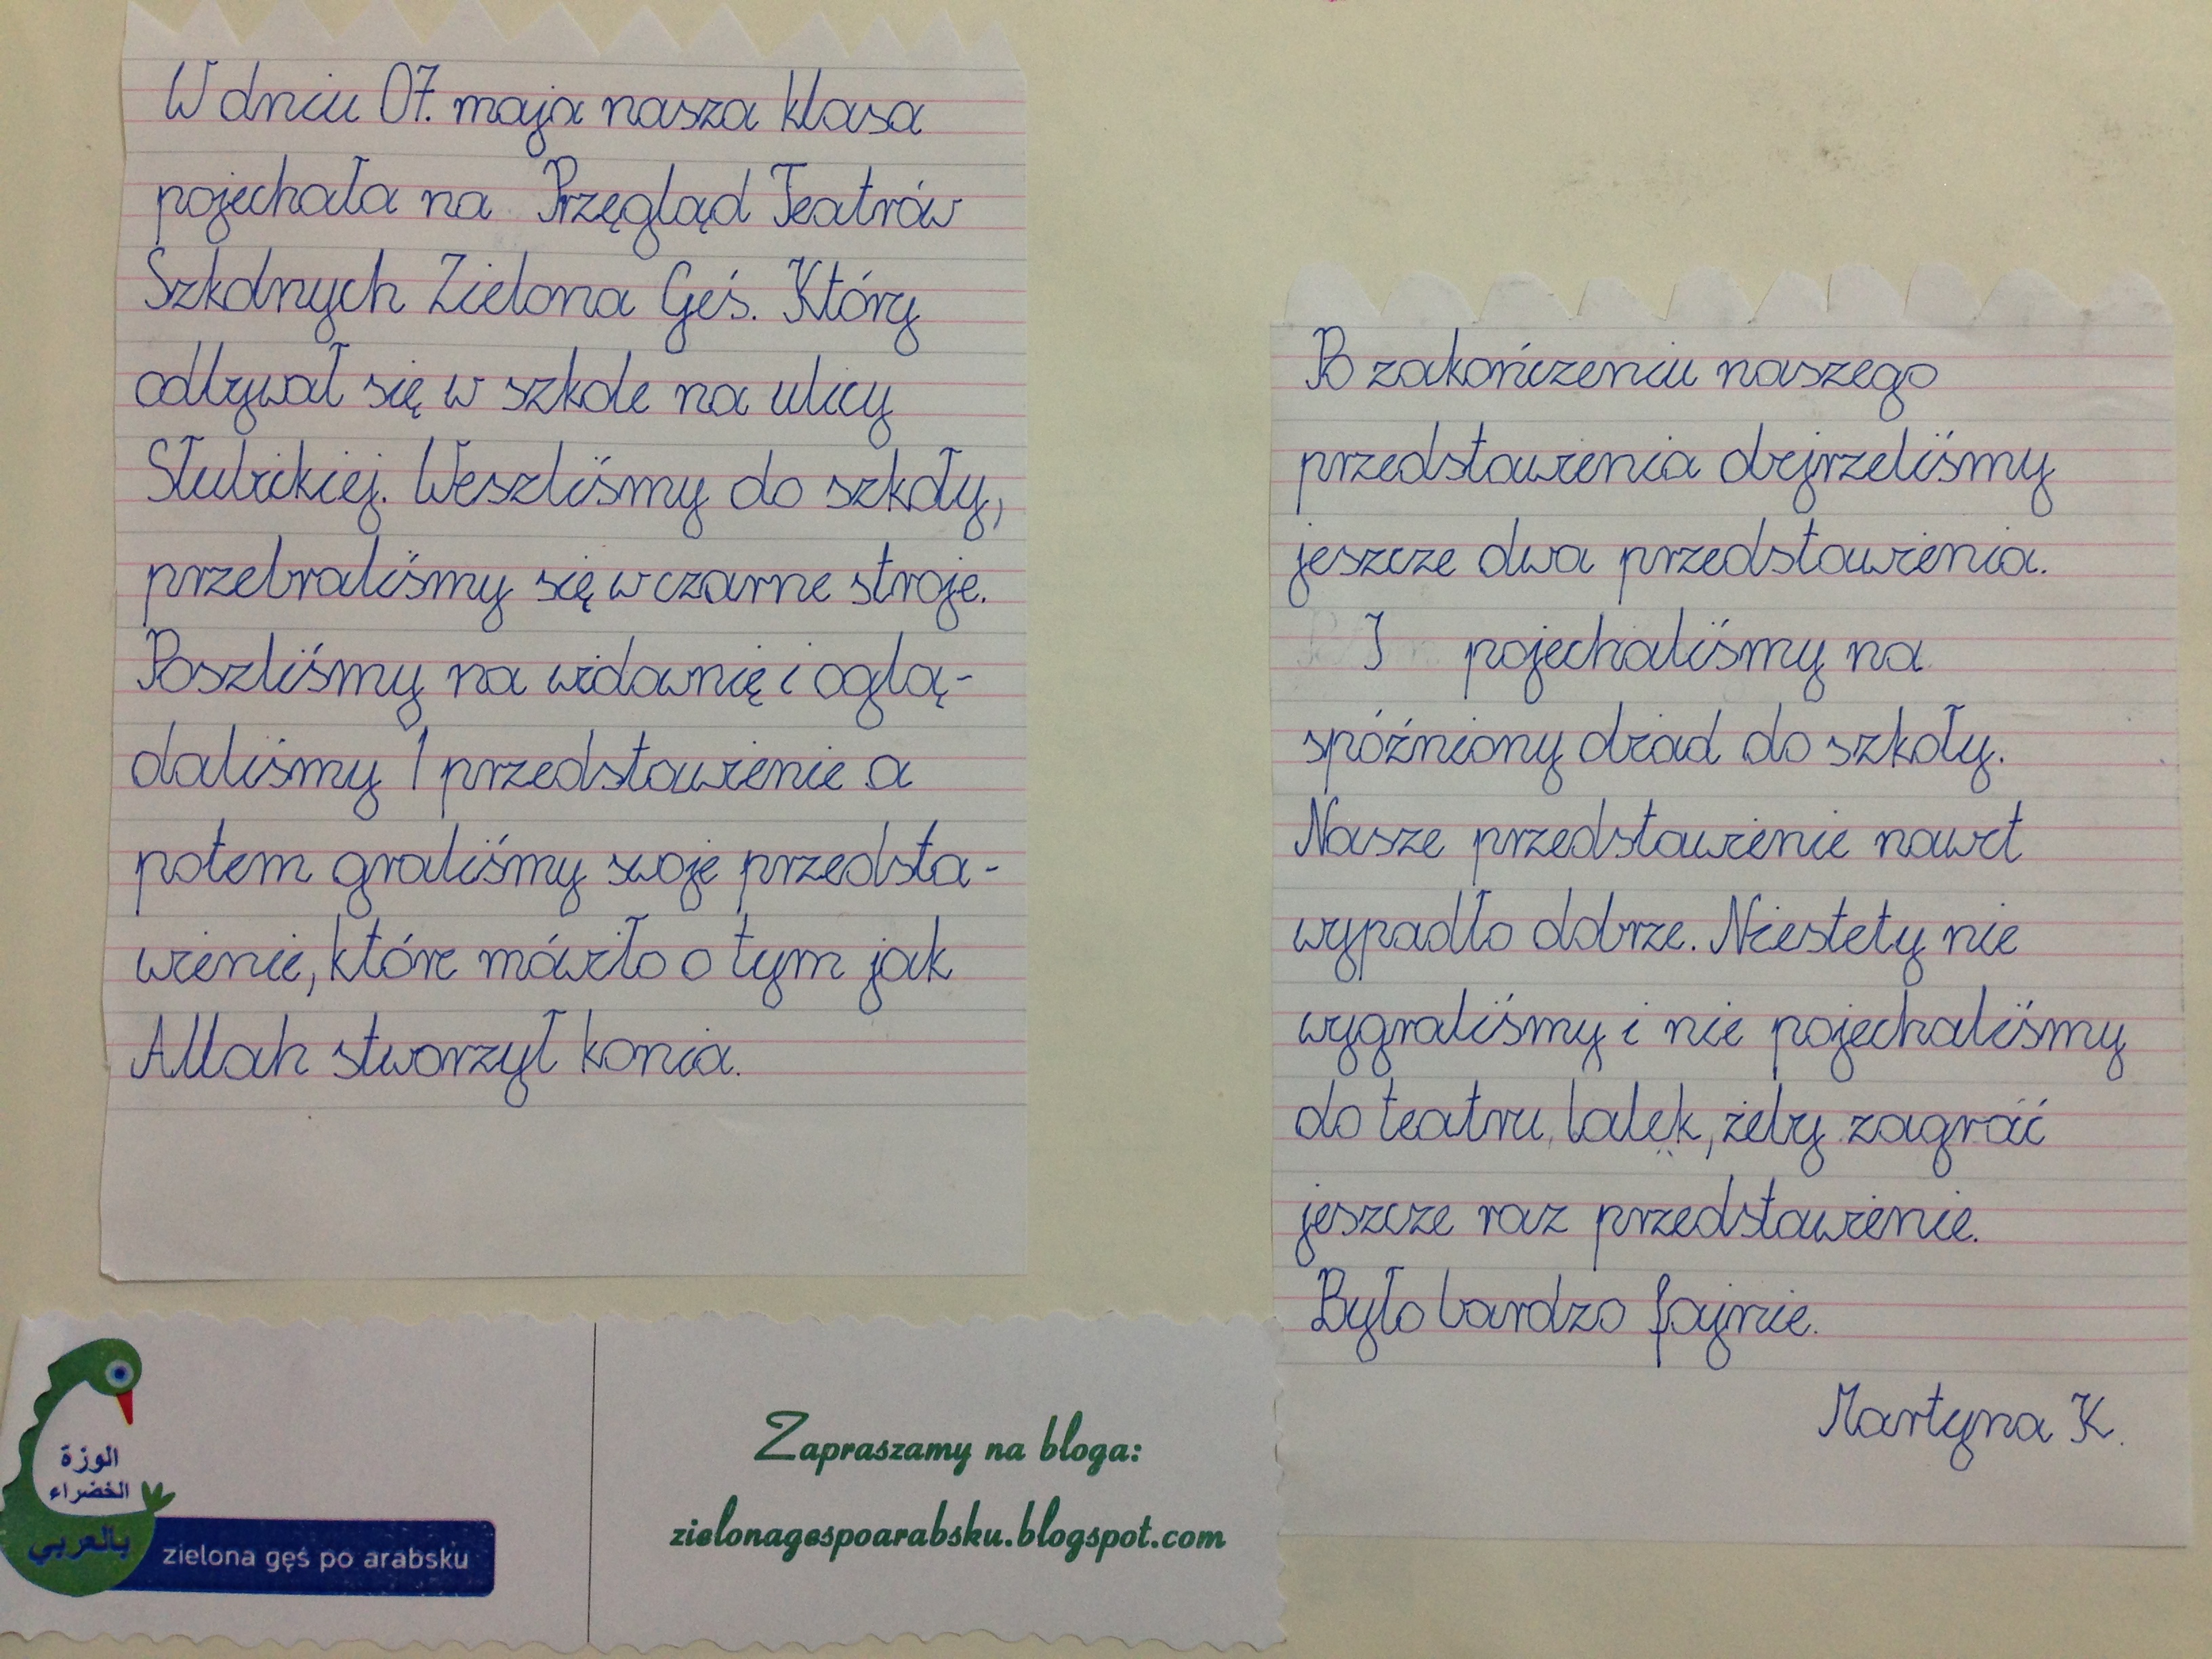 W dniu 07. maja nasza klasa
pojechała na Przęgląd Teatrów
Szkolnych Zielona Gęś. Który
odbywał się w szkole na ulicy
Słubickiej. Weszliśmy do szkoły,
przebraliśmy się w czarne stroje.
Poszliśmy na widownię i oglą-
daliśmy 1 przedstawienie a
potem graliśmy swoje przedsta-
wienie, które mówiło o tym jak
Allah stworzył konia.
Po zakończeniu naszego
przedstawienia obejrzeliśmy
jeszcze dwa przedstawienia.
I pojechaliśmy na
spóźniony obiad do szkoły.
Nasze przedstawienie nawet
wypadło dobrze. Niestety nie
wygraliśmy i nie pojechaliśmy
do teatru, lalek, żeby zagrać
jeszcze raz przedstawienie.
Było bardzo fajnie.
Martyna K.
الوزة
الخضراء
بالعربي
zielona gęś po arabsku
Zapraszamy na bloga:
zielonagespoarabsku.blogspot.com